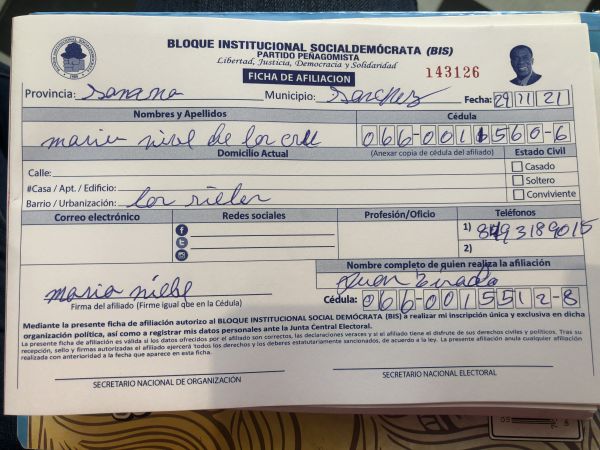 BLOQUE INSTITUCIONAL SOCIALDEMÓCRATA (BIS)
PARTIDO PEÑAGOMISTA
Libertad, Justicia, Democracia y Solidaridad
FICHA DE AFILIACION
143126
Provincia: Samana Municipio: Sanchez Fecha: 29 11 21
Nombres y Apellidos Cédula
maria de 066-001 560-6
Domicilio Actual (Anexar copia de cédula del afiliado) Estado Civil
Calle: Casado
#Casa / Apt. / Edificio: Soltero
Barrio / Urbanización: los Conviviente
Correo electrónico Redes sociales Profesión/Oficio Teléfonos
1) 8493189015
2)
Nombre completo de quien realiza la afiliación
maria Juan
Firma del afiliado (Firme igual que en la Cédula) Cédula: 066-0015512-8
Mediante la presente ficha de afiliación autorizo al BLOQUE INSTITUCIONAL SOCIAL DEMÓCRATA (BIS) a realizar mi inscripción única y exclusiva en dicha
organización política, así como a registrar mis datos personales ante la Junta Central Electoral.
La presente ficha de afiliación es válida si los datos ofrecidos por el afiliado son correctos, las declaraciones veraces y si el afiliado tiene el disfrute de sus derechos civiles y políticos. Tras su
recepción, sello y firmas autorizadas el afiliado ejercerá todos los derechos y los deberes estatutariamente sancionados, de acuerdo a la ley. La presente afiliación anula cualquier afiliación
realizada con anterioridad a la fecha que aparece en esta ficha.
SECRETARIO NACIONAL DE ORGANIZACIÓN SECRETARIO NACIONAL ELECTORAL